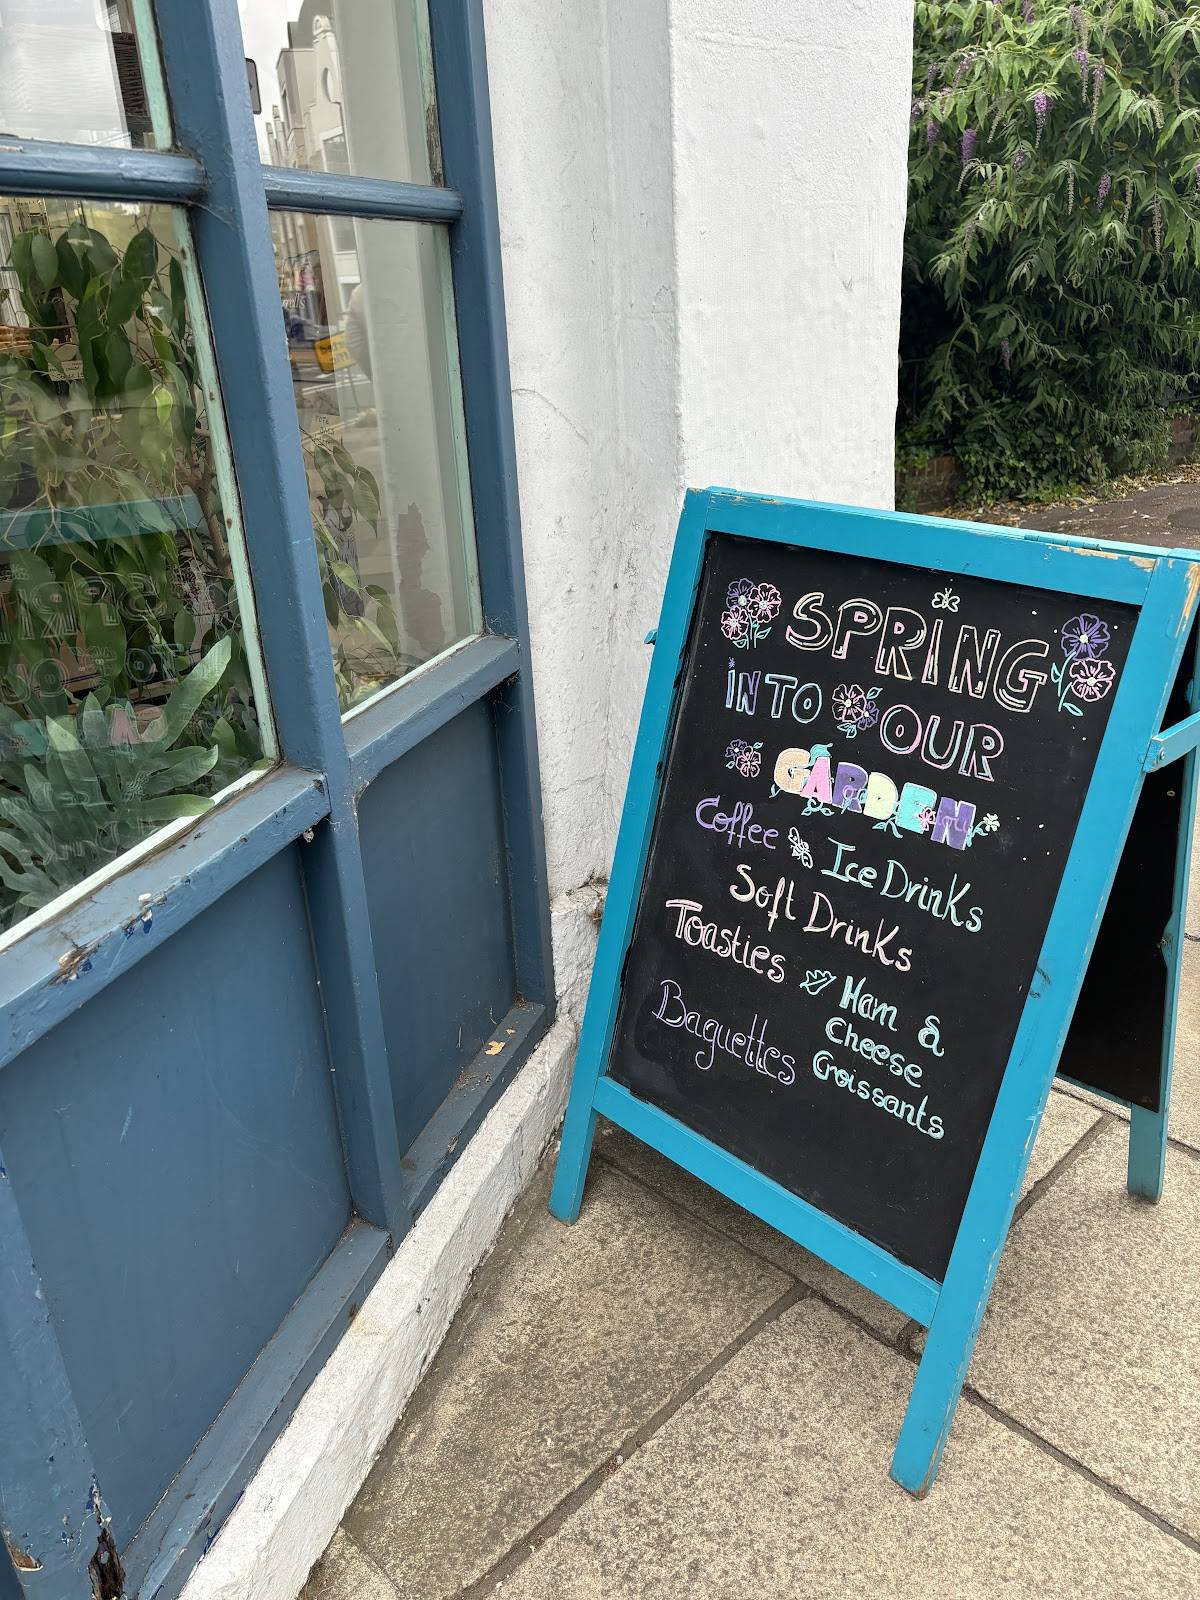 SPRING
INTO OUR
GARDEN
Coffee Ice Drinks
Soft Drinks
Toasties Ham &
Cheese
Baguettes Croissants